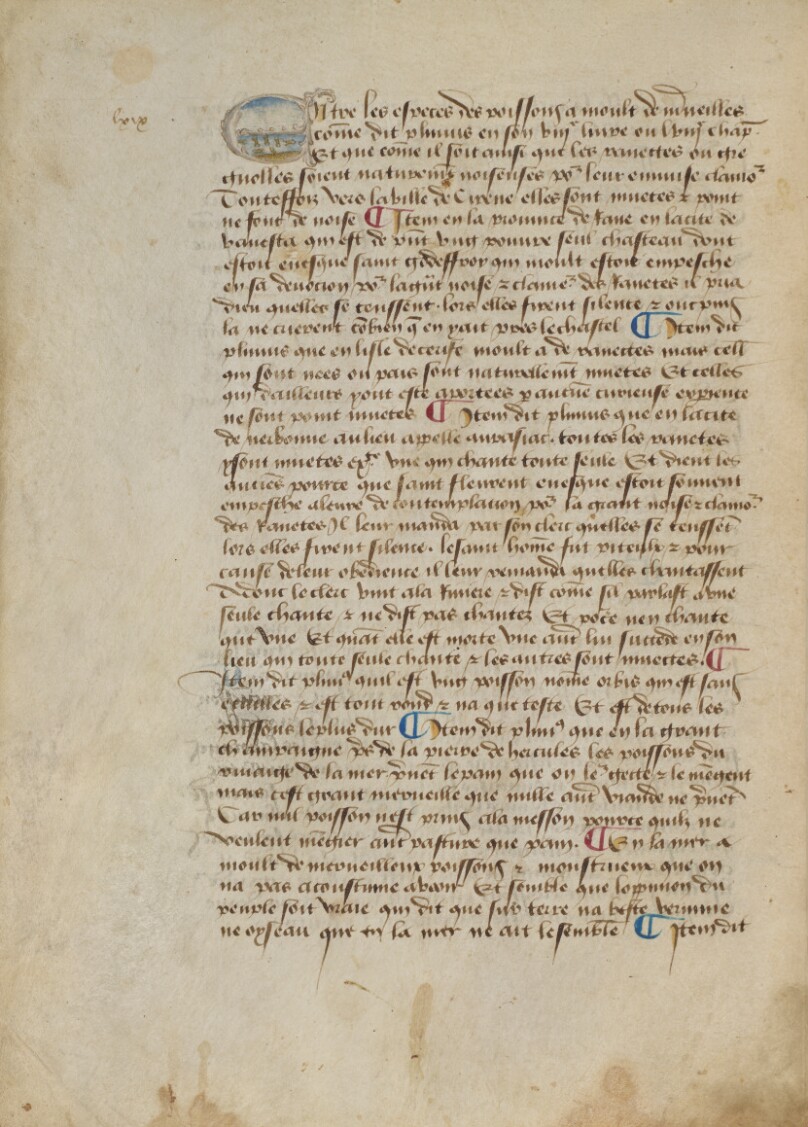 lxix
Entre les especes des poissons a moult de m̄ueilles
cōme dit plinius en son viijͤ liure ou lviijͤ chap̄
Et que cōme il soit ainsi que les ranettes ou gre
quelles soient naturelmt̄ noiseuses poͬ leur ennuise clamoͬ
Touteffois vers la ville de Cirene elles sont muetes ⁊ point
ne font de noise ¶ Item en la prouince de en la cite de
qui est de pn̄t vng poure seul chasteau dont
estoit euesque saint qui moult estoit empesche
en sa deuocion poͬ la grāt noise ⁊ clameͬ des Ranetes il pria
dieu quelles se teussent. lors elles firent silence ⁊ onc puis
la ne crierent cōbien q̄ en ait pres le chastel ¶ Item dit
plinius que en lisle de moult a de ranectes mais cell
qui sont nees ou pais sont naturellemt̄ muetes Et celles
qui dailleurs y ont este aportees p aucūe curieuse expience
ne sont point muetes ¶ Item dit plinius que en la cite
de nerbonne au lieu appelle toutes les ranetes
y sont muetes vne qui chante toute seule Et dient les
aucūs pource que saint florent euesque estoit souuent
empesche a leure de contemplacion poͬ la grant noise ⁊ clamoͬ
des Ranetes Il leur manda par son clerc quelles se teussēt
lors elles firent silence. le saint hōme fut piteux ⁊ pour
cause de leur obedience il leur remanda quelles chantassent
Adonc le clerc vint a la Riuiere ⁊ dist cōme sil parlast a vne
seule chante ⁊ ne dist pas chantez Et poͬce nen chante
que vne Et quāt elle est morte vne aut̄ lui succede en son
lieu qui toute seule chante ⁊ les autres sont muectes. ¶
Item dit plini9 quil est vng poisson nōme orbis qui est sans
escailles ⁊ est tout rond ⁊ na que teste Et est de tous les
poissons le plus dur ¶ Item dit plini9 que en la grant
champaigne p̄s de la pierre de hercules les poissons du
riuaige de la mer p̄nēt le pain que on leͬ gecte ⁊ le mēgent
mais cest grant merueille que nulle aut̄ viande ne p̄nēt
Car nul poisson nest prins a la messon pource quilz ne
veulent mēgier aut̄ pasture que pain. ¶ En la mer a
moult de merueilleux poissons ⁊ monstrueux que on
na pas acoustume a veoir Et semble que loppinion du
peuple soit vraie qui dit que sur terre na beste vermine
ne oyseau que en la mer ne ait le semble ¶ Item dit